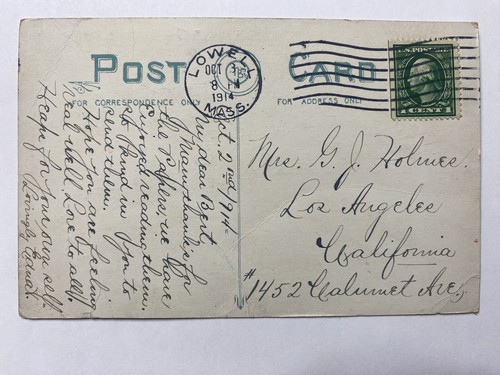 POST CARD
FOR CORRESPONDENCE ONLY
FOR ADDRESS ONLY
LOWELL
OCT
8 PM
1914
MASS.
U.S. POSTAGE
CENTS
Oct. 2nd 1914.
My dear Bert,
Many thanks for
the Papers, we have
Enjoyed reading them.
So kind in you to
send them.
Hope you are feeling
real well. Love to all
Heaps for your own self.
Lovingly
Mrs. G. J. Holmes.
Los Angeles
California
# 1452 Calumet Ave.